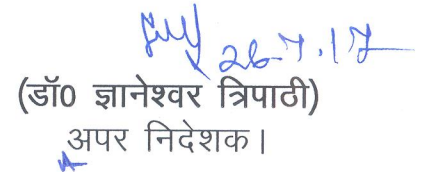 26.7.17
(डॉ0 ज्ञानेश्वर त्रिपाठी)
अपर निदेशक।